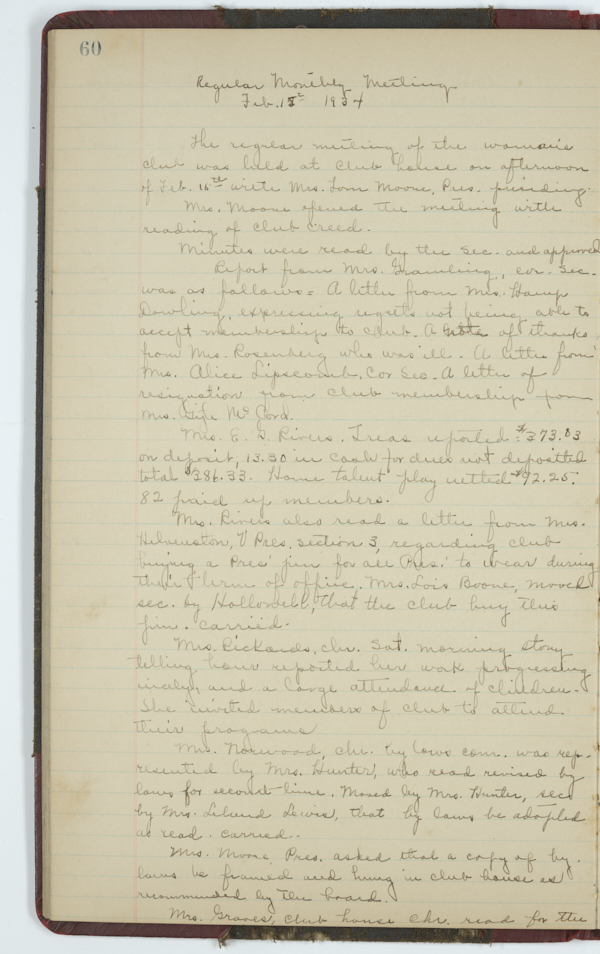 60
Regular Monthly Meeting
Feb. 15th 1934
The regular meeting of the woman's
club was held at club house on afternoon
of Feb. 15th with Mrs. Tom Moore, Pres. presiding.
Mrs. Moore opened the meeting with
reading of club creed.
Minutes were read by the Sec. and approved
Report from Mrs. Grambling, cor. Sec.
was as follows = A letter from Mrs. Hamp
Dowling, expressing regrets not being able to
accept membership to club. A note of thanks
from Mrs. Rosenberg who was ill. A letter from
Mrs. Alice Lipscomb, Cor Sec. A letter of
resignation from club membership from
Mrs. McCord.
Mrs. E. G. Rivers. Treas reported $373.03
on deposit, 13.30 in cash for dues not deposited
total $386.33. Home talent play netted $92.25.
82 paid up members.
Mrs. Rivers also read a letter from Mrs.
V Pres. section 3, regarding club
buying a Pres' pin for all Pres.' to wear during
their term of office. Mrs. Lois Boone, moved
sec. by Hollowell, that the club buy this
pin. carried.
Mrs. Rickards, chr. Sat. morning story
telling hour reported her work progressing
nicely and a large attendance of children.
She invited members of club to attend
their programs
Mrs. Norwood, chr. by laws com. was rep-
resented by Mrs. Hunter, who read revised by
laws for second time. Moved by Mrs. Hunter, sec
by Mrs. Leland Lewis, that by laws be adopted
as read. carried.
Mrs. Moore, Pres. asked that a copy of by.
laws be framed and hung in club house as
recommended by the board.
Mrs. Graves, club house chr. read for the